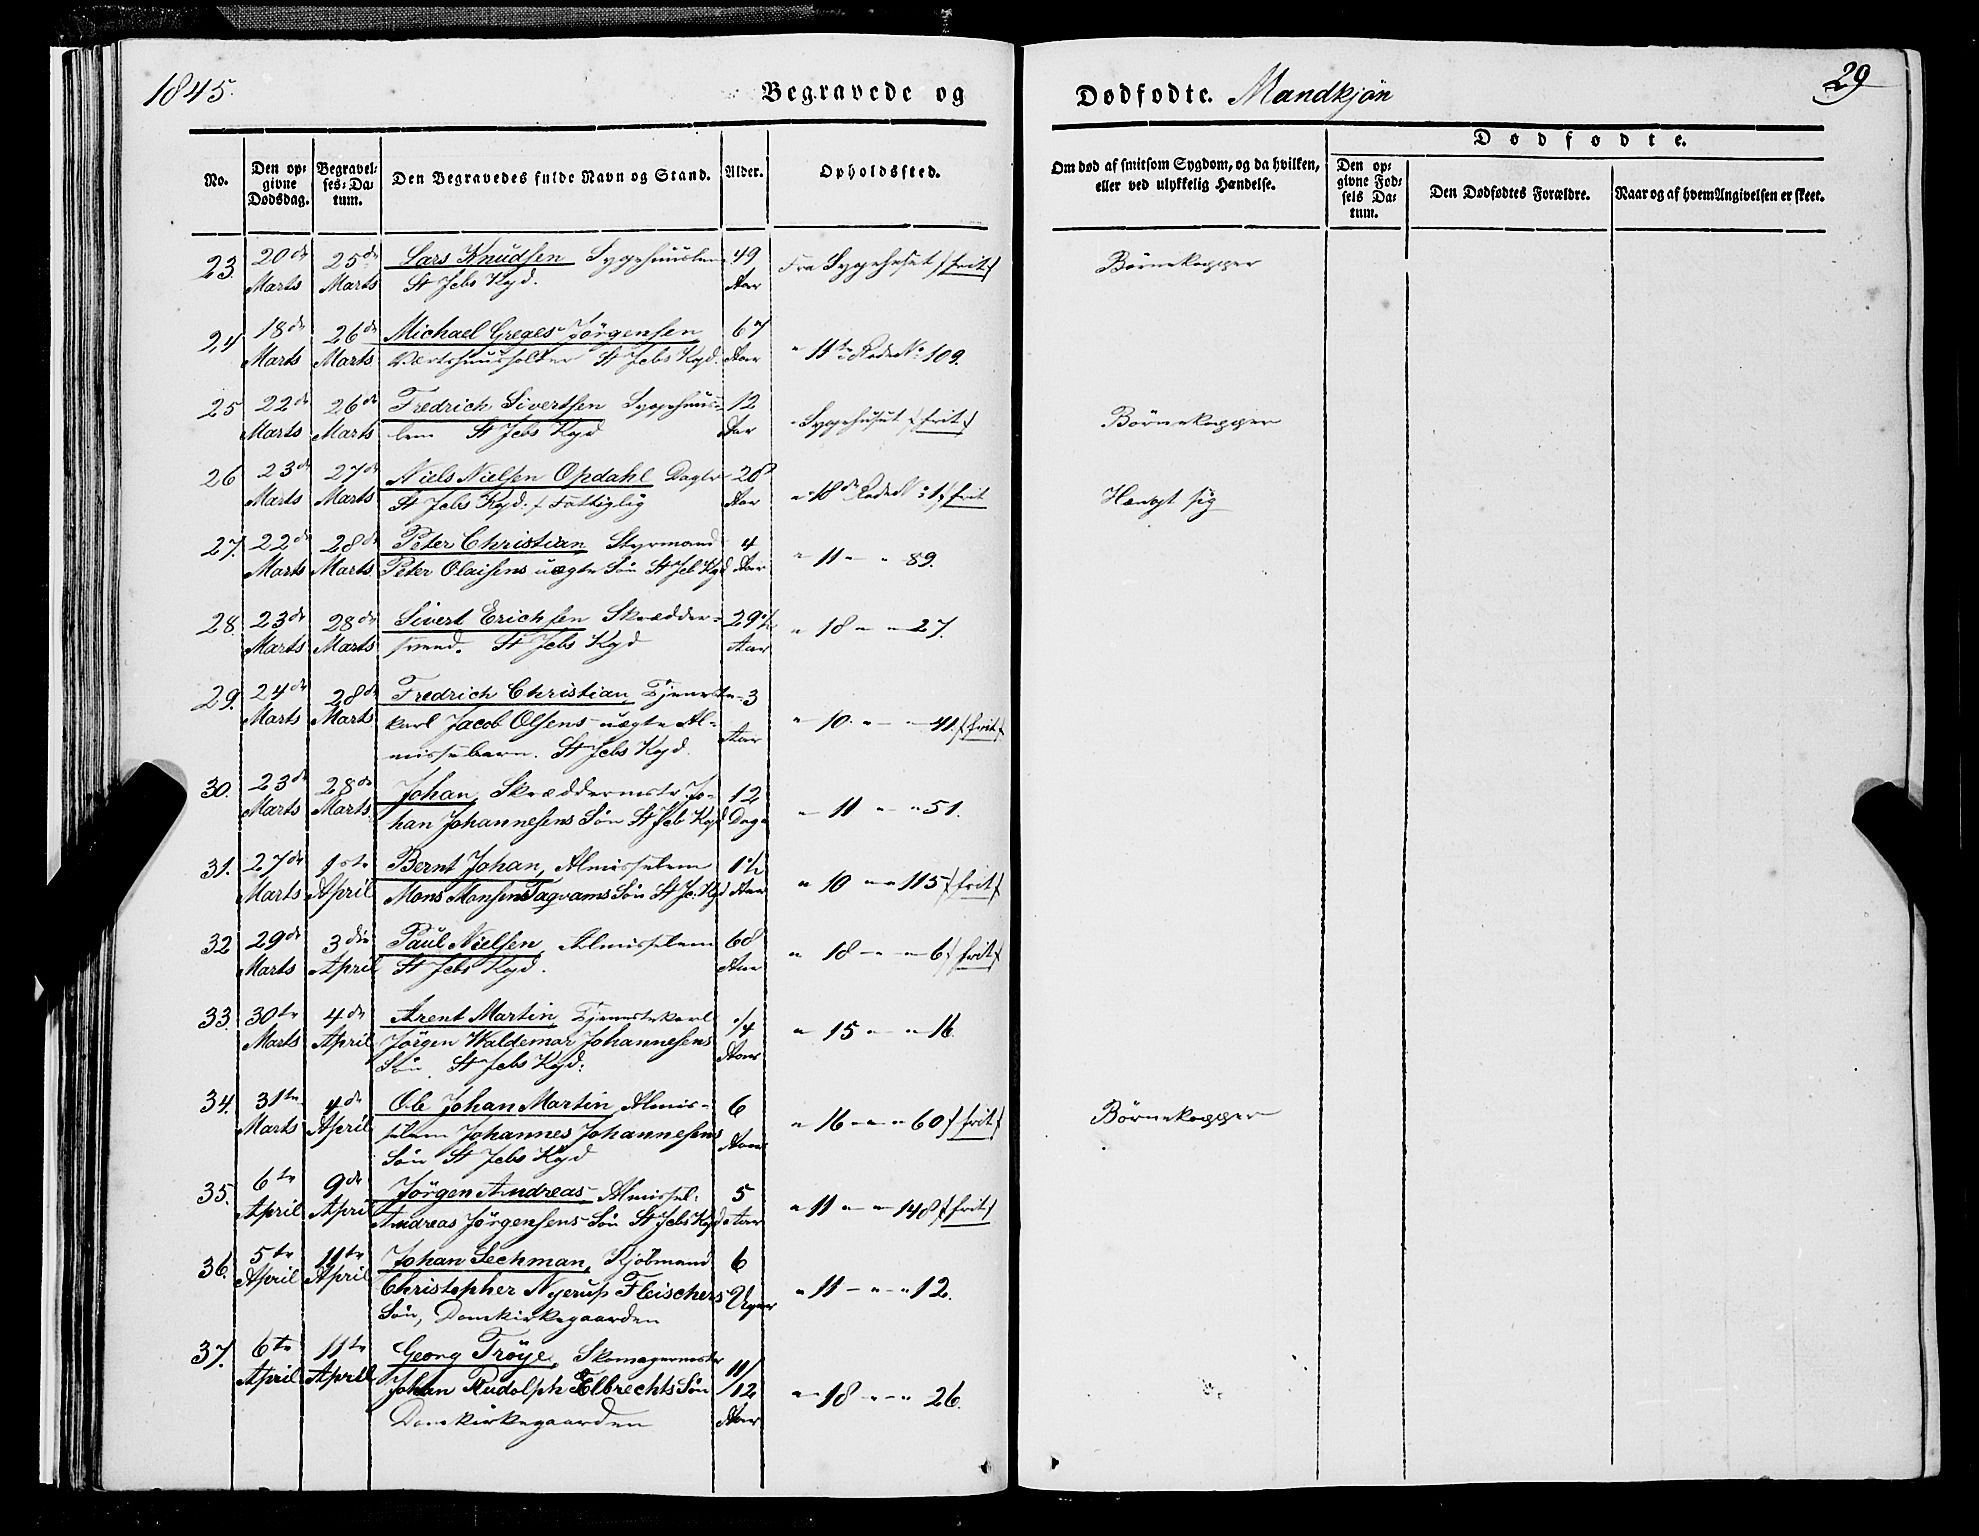 1845.
Begravede og Dødfødte. Mandkjøn
29
No.
Den opgivne Dødsdag.
Begravelses-Datum.
Den Begravedes fulde Navn og Stand.
Alder.
Opholdssted.
Om død af smitsom Sygdom, og da hvilken,
eller ved ulykkelig Hændelse.
Dødfødte.
Den opgivne Fødsels Datum.
Den Dødfødtes Forældre.
Naar og af hvem Angivelsen er skeet.
23. 20de 25de Lars Knudsen Sygehuuslem 49 Fra Sygehuset (frit) Børnekopper
Marts Marts St Jebs Kgd. Aar
24 18de 26de Michael Greges Jørgensen 67
Marts Marts Værtshuusholder St Jebs Kgd. Aar " 11te Rode No 109.
25 22de 26de Fredrich Sivertsen Sygehuus- 12 " Sygehuset (frit) Børnekopper
Marts Marts lem St Jebs Kgd Aar
26 23de 27de Niels Nielsen Opdahl Daglr 28
Marts Marts St Jebs Kgd. Fattiglig Aar " 18de Rode No 1 frit Hængt sig
27. 22de 28de Peter Christian, Styrmand 4
Marts Marts Peter Olaisens uægte Søn St Jeb Kgd Aar " 11 — " 89.
28. 23de 28de Sivert Erichsen Skrædder- 29½ " 18 — " 27.
Marts Marts svend. St Jebs Kgd Aar
29. 24de 28de Fredrich Christian, Tjeneste- 3
Marts Marts karl Jacob Olsens uægte Al- " 10. " — " 41. (frit)
missebarn. St Jebs Kgd. Aar
30. 23de 28de Johan, Skræddermstr Jo- 12
Marts Marts han Johannesens Søn St Jeb Kgd Dage " 11 — " 51.
31. 27de 1ste Bernt Johan, Almisselem 1½
Marts April Mons Monsens Tagvams Søn St Je. Kgd Aar " 10 — " 115 (frit)
32 29de 3die Paul Nielsen, Almisselem 68 " 18 — " 6 (frit)
Marts April St Jebs Kgd. Aar
33. 30te 4de Arent Martin, Tjenestekarl ¼
Marts April Jørgen Waldemar Johannesens " 15 — " 16.
Søn. St Jebs Kgd. Aar
34. 31te 4de Ole Johan Martin, Almis- 6 Børnekopper
Marts April selem Johannes Johannesens " 16 — " 60 (frit)
Søn St Jebs Kgd Aar
35. 6te 9de Jørgen Andreas, Almissel. 5
April April Andreas Jørgensens Søn St Jebs Kgd Aar " 11 — " 148 (frit)
36. 5te 11te Johan Sechman, Kjøbmand 6
April April Christopher Nyerup Fleischers Uger " 11 — " 12.
Søn, Domkirkegaarden
37. 6te 11te Georg Trøye, Skomagermester 11/12
April April Johan Rudolph Elbrechts Søn " 18 — " 26.
Domkirkegaarden Aar